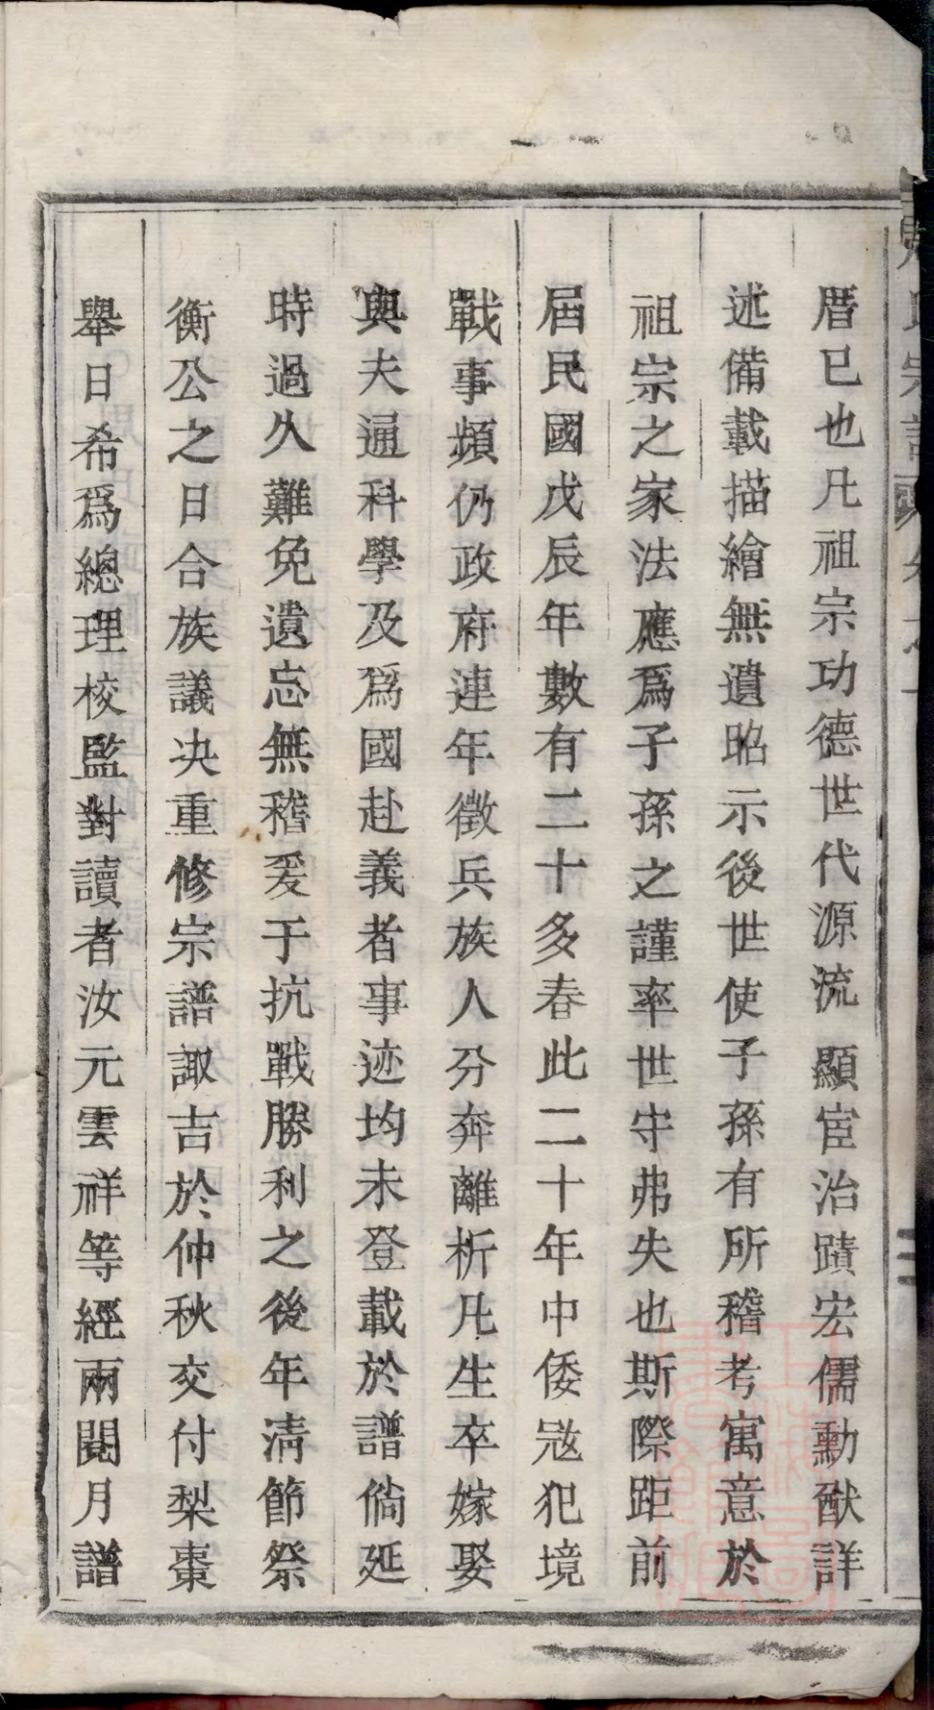 厝已也凡祖宗功德世代源流顯宦治蹟宏儒勳猷詳
述備載描繪無遺昭示後世使子孫有所稽考寓意於
祖宗之家法應爲子孫之謹率世守弗失也斯際距前
屆民國戊辰年數有二十多春此二十年中倭寇犯境
戰事頻仍政府連年徵兵族人分奔離析凡生卒嫁娶
與夫通科學及爲國赴義者事迹均未登載於譜倘延
時過久難免遺忘無稽爰于抗戰勝利之後年清節祭
衡公之日合族議決重修宗譜諏吉於仲秋交付梨棗
舉日希爲總理校監對讀者汝元雲祥等經兩閱月譜